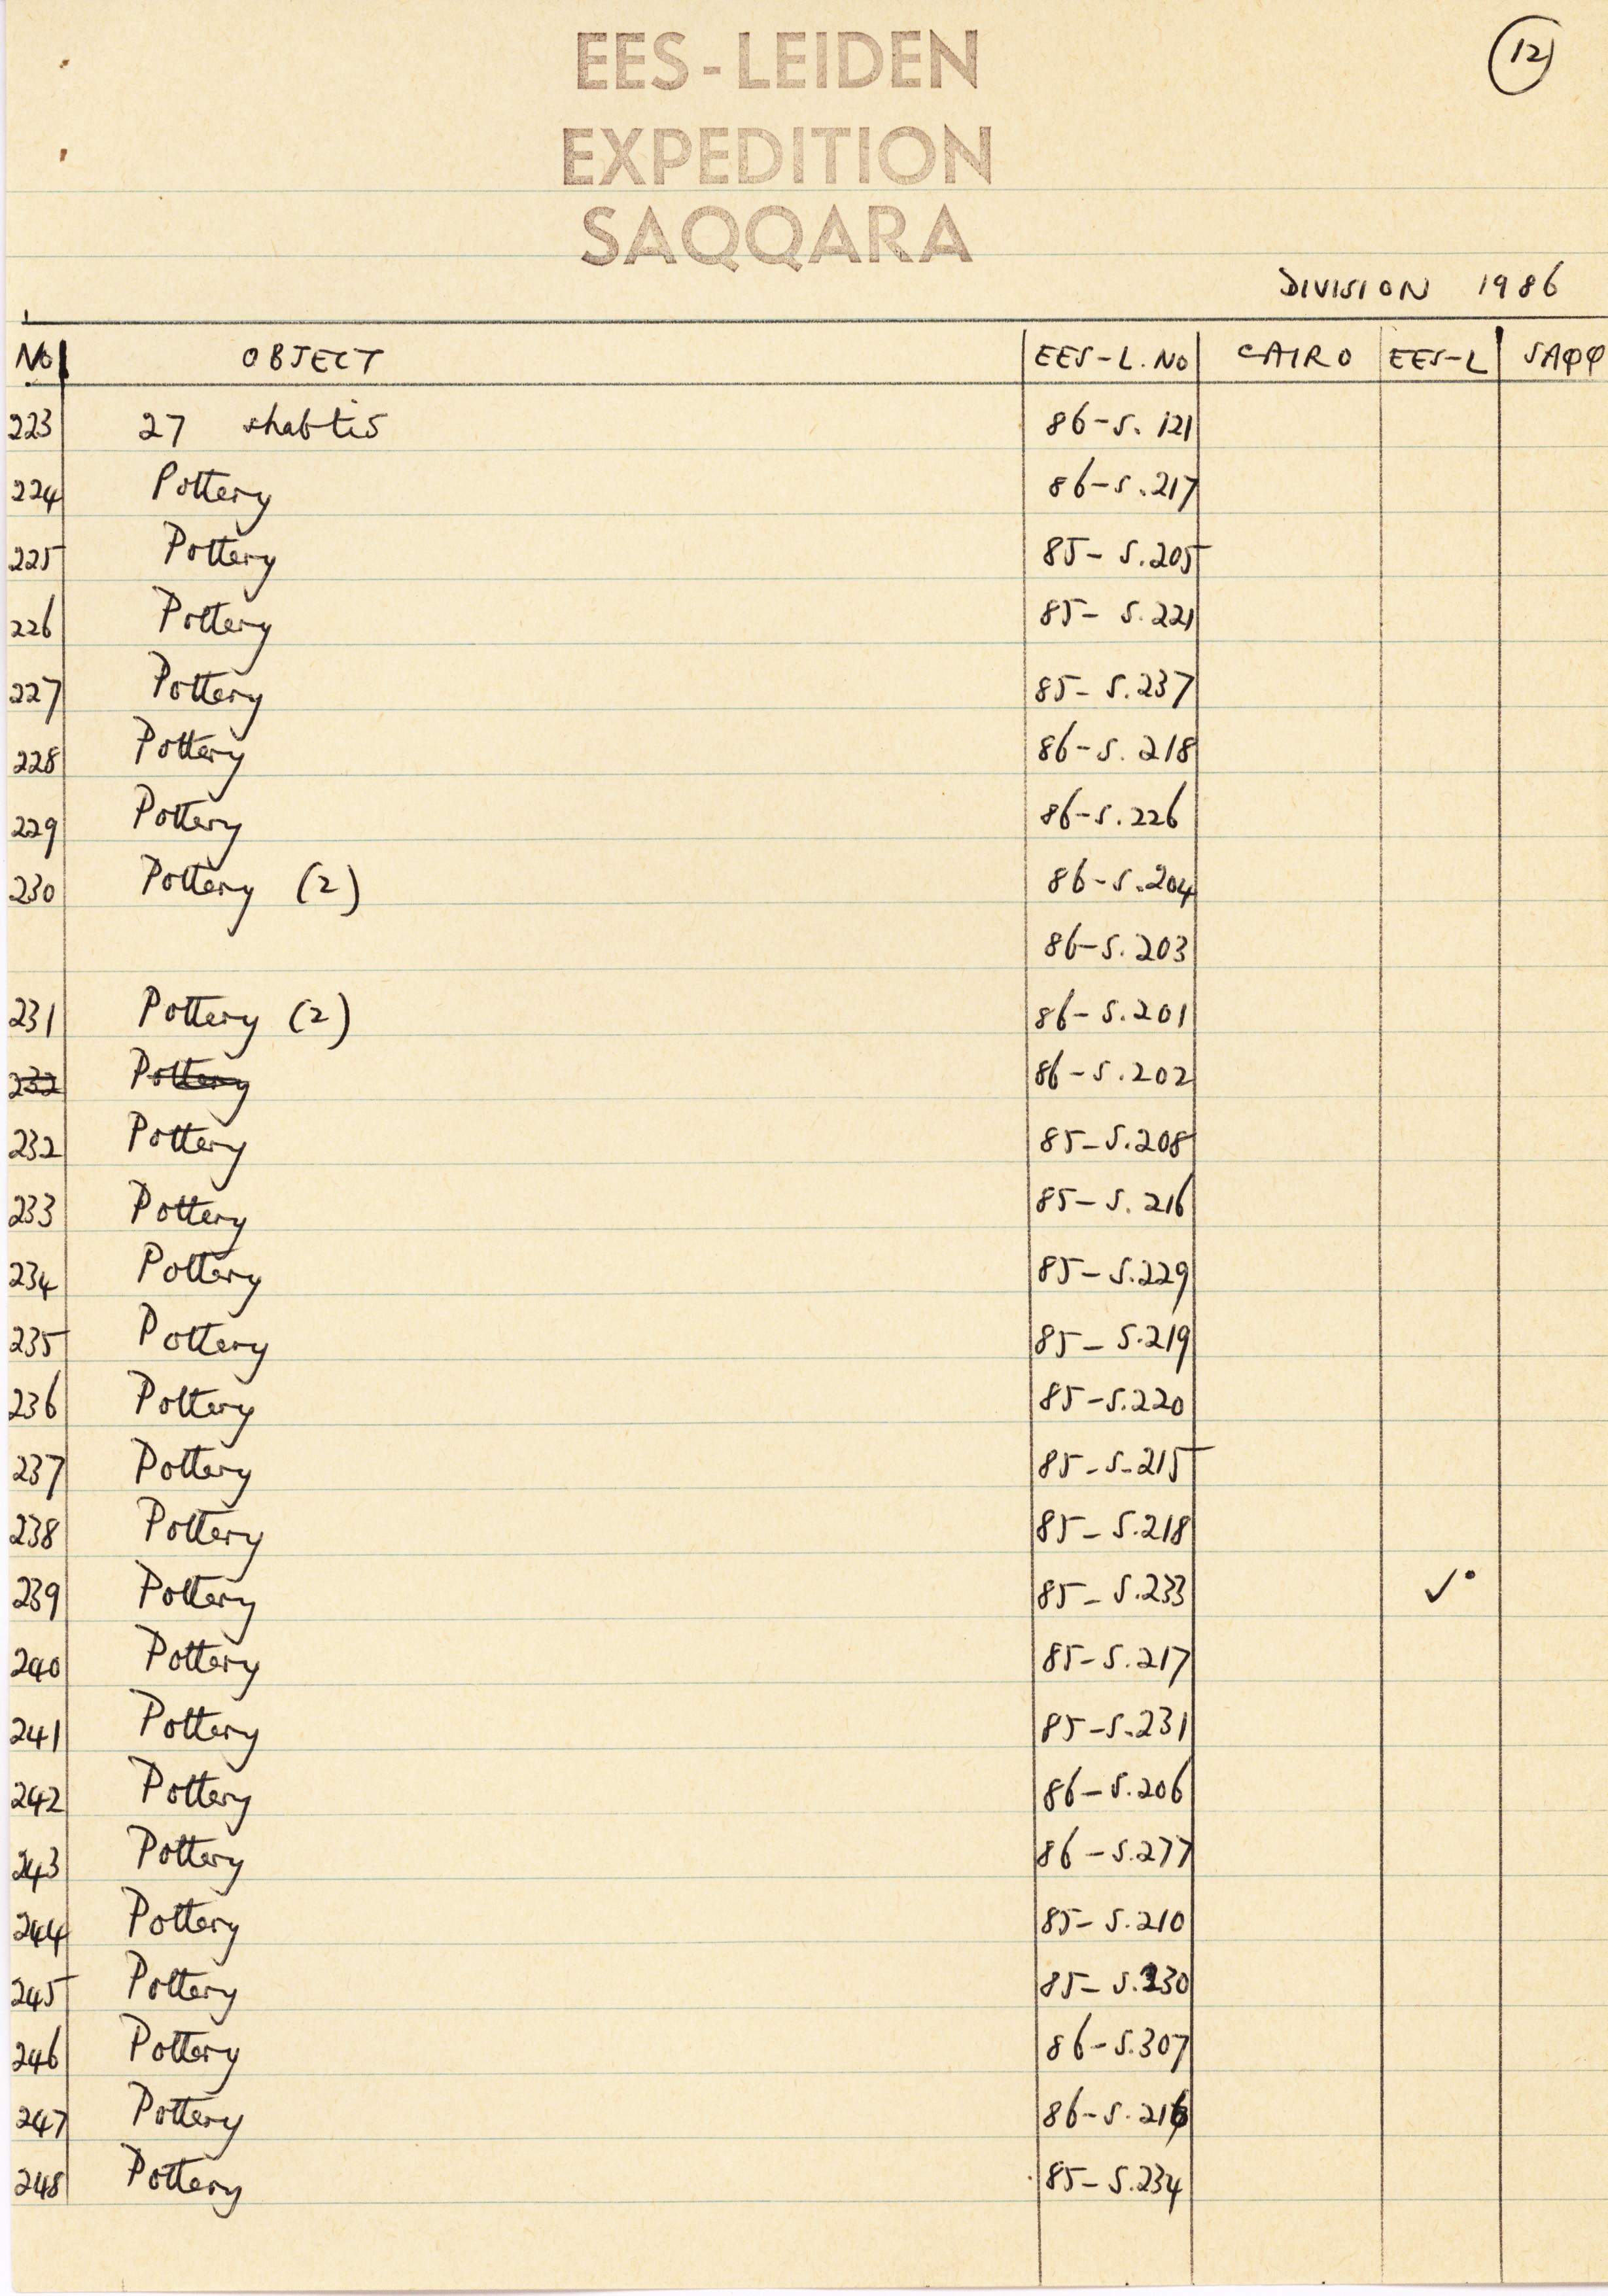 EES-LEIDEN
EXPEDITION
SAQQARA
12
DIVISION 1986
No OBJECT EES-L.No CAIRO EES-L SAQQ
223 27 shabtis 86-S.121
224 Pottery 86-S.217
225 Pottery 85-S.205
226 Pottery 85-S.221
227 Pottery 85-S.237
228 Pottery 86-S.218
229 Pottery 86-S.226
230 Pottery (2) 86-S.204
86-S.203
231 Pottery (2) 86-S.201
232 Pottery 86-S.202
232 Pottery 85-S.208
233 Pottery 85-S.216
234 Pottery 85-S.229
235 Pottery 85-S.219
236 Pottery 85-S.220
237 Pottery 85-S-215
238 Pottery 85-S.218
239 Pottery 85-S.233 ✓
240 Pottery 85-S.217
241 Pottery 85-S.231
242 Pottery 86-S.206
243 Pottery 86-S.277
244 Pottery 85-S.210
245 Pottery 85-S.230
246 Pottery 86-S.307
247 Pottery
248 Pottery 85-S.234